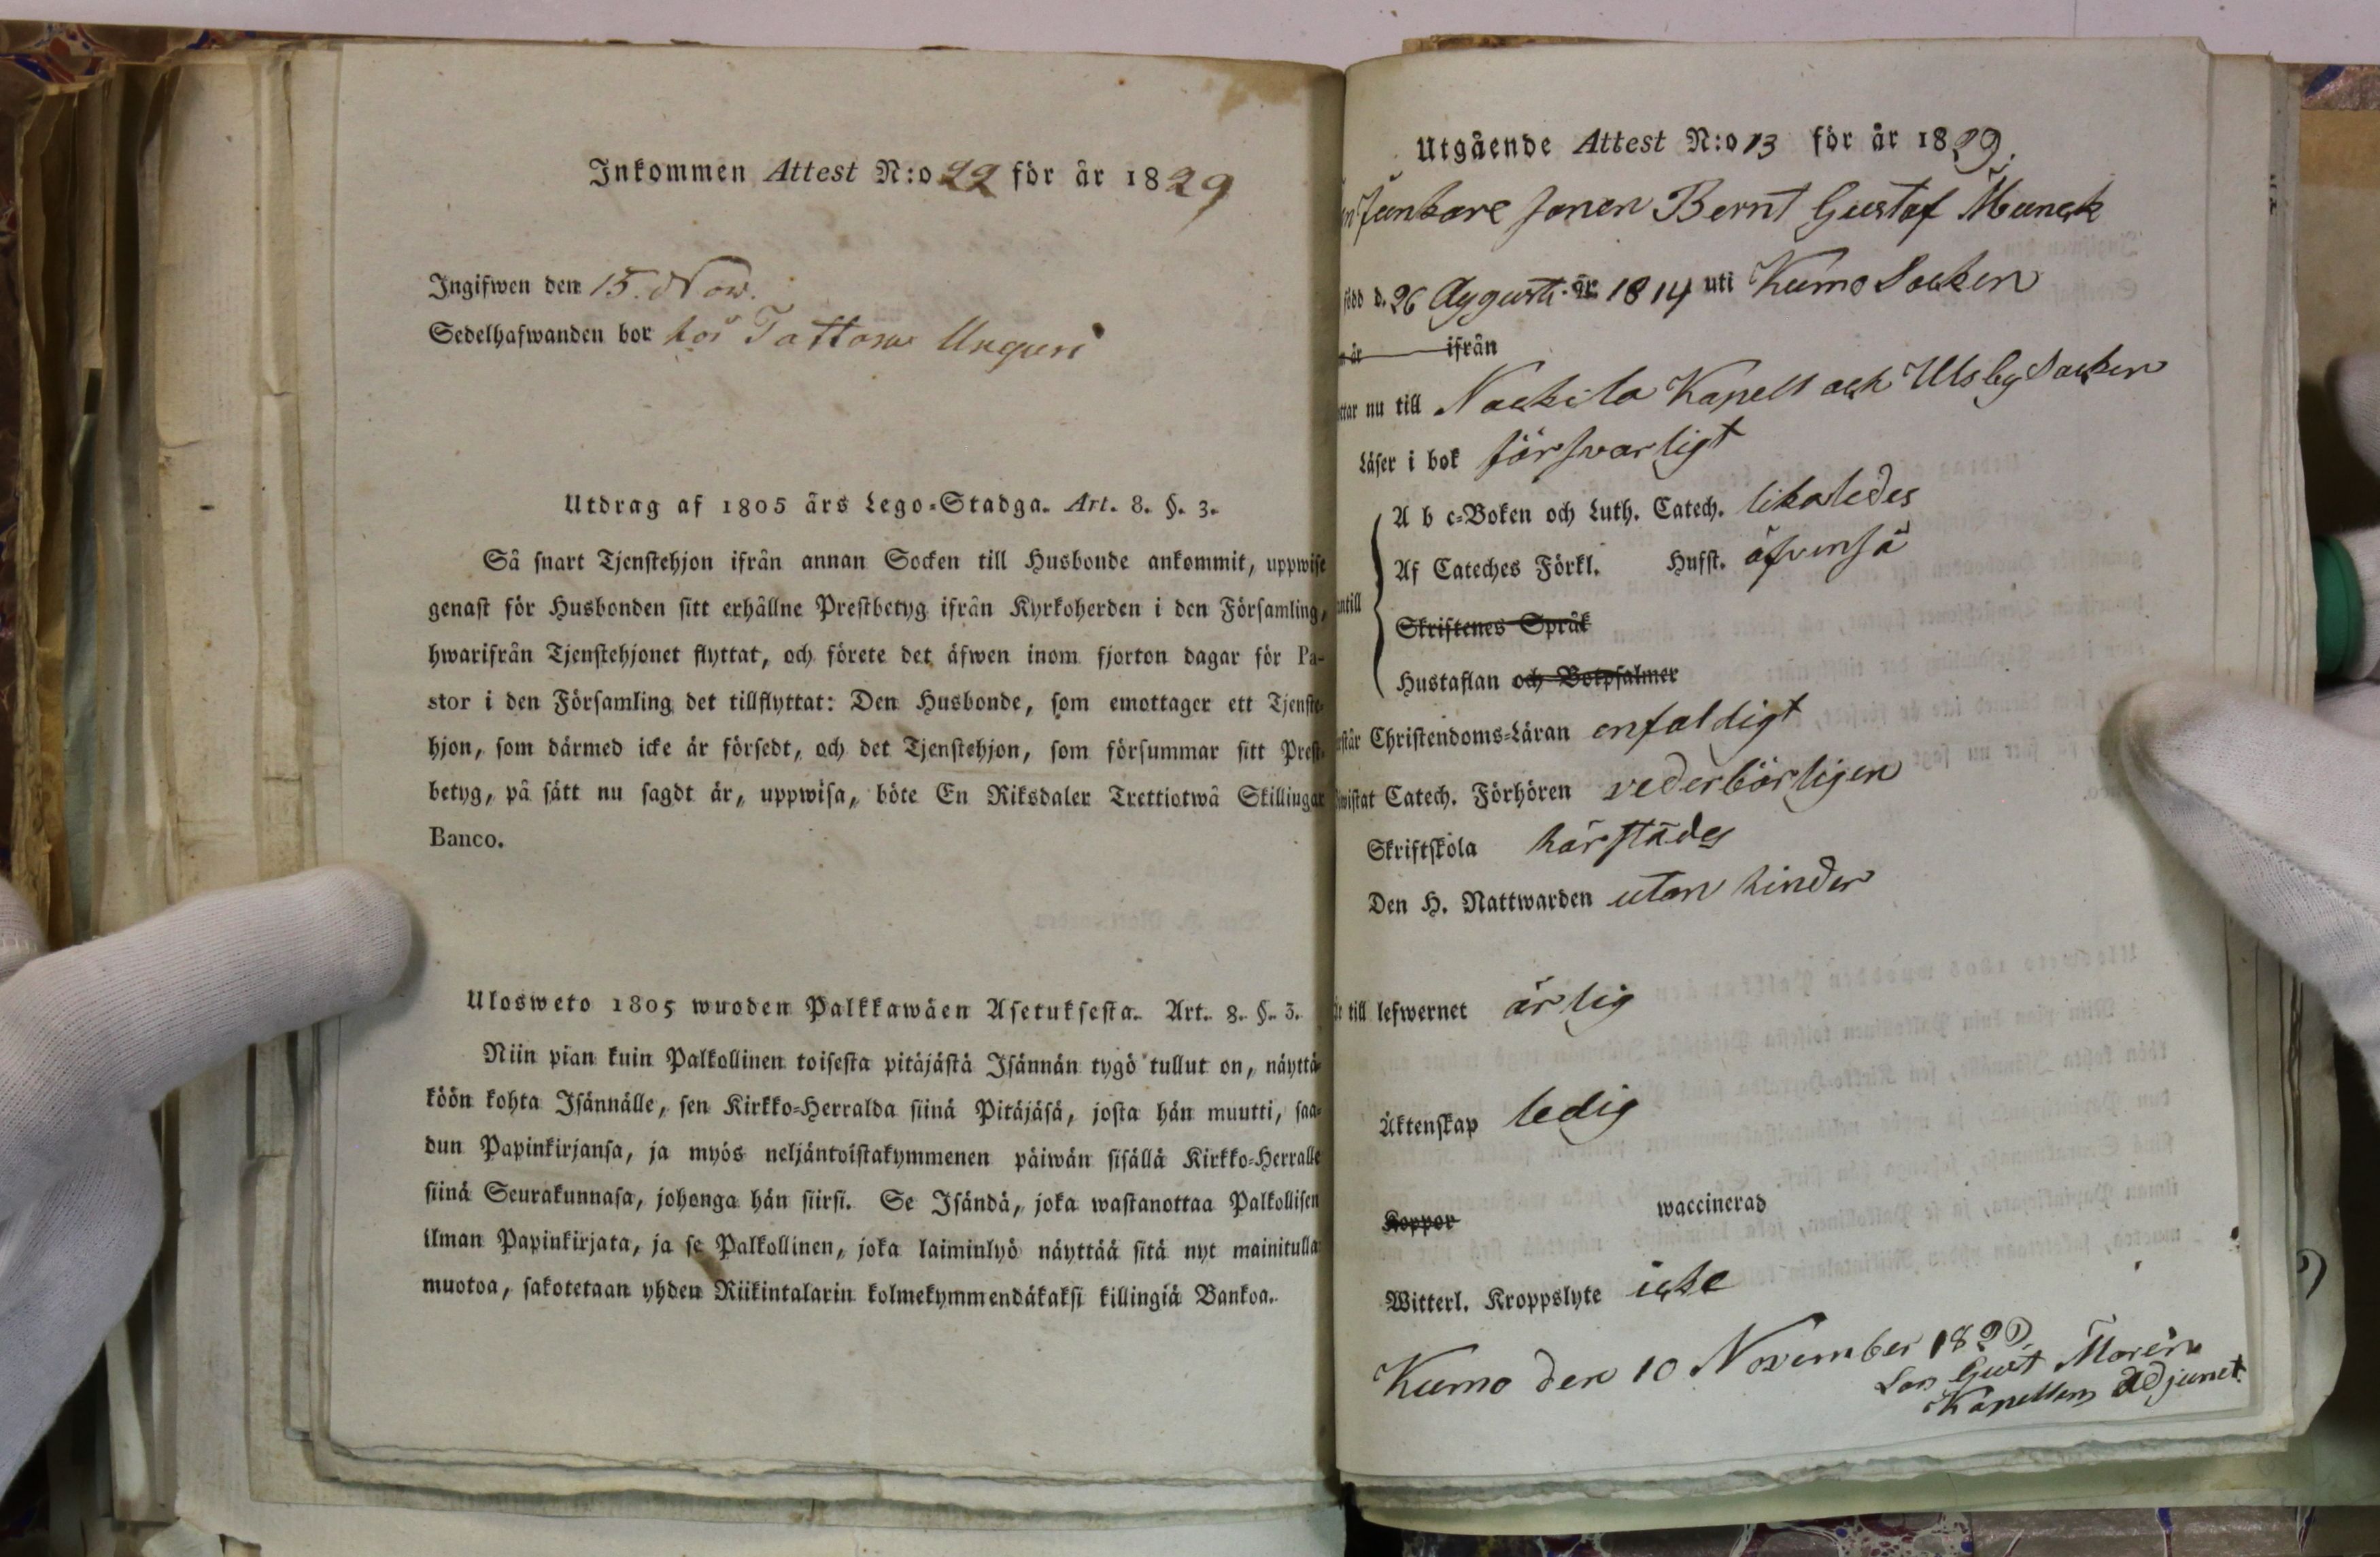 Inkommen Attest N:o 22 för år 1829
Ingifwen den 15. Nov.
Sedelhafwanden bor hos Tattara Unguri
Utdrag af 1805 års Lego-Stadga. Art. 8. §. 3.
Så snart Tjenstehjon ifrån annan Socken till Husbonde ankommit, uppwise
genast för Husbonden sitt erhållne Prestbetyg ifrån Kyrkoherden i den Församling,
hwarifrån Tjenstehjonet flyttat, och förete det äfwen inom fjorton dagar för Pa-
stor i den Församling det tillflyttat: Den Husbonde, som emottager ett Tjenste-
hjon, som därmed icke är försedt, och det Tjenstehjon, som försummar sitt Prest-
betyg, på sätt nu sagdt är, uppwisa, böte En Riksdaler Trettiotwå Skillingar
Banco.
Ulosweto 1805 wuoden Palkkawäen Asetuksesta. Art. 8. §. 3.
Niin pian kuin Palkollinen toisesta pitäjästä Isännän tygö tullut on, näyttä-
köön kohta Isännälle, sen Kirkko-Herralda siinä Pitäjäsä, josta hän muutti, saa-
dun Papinkirjansa, ja myös neljäntoistakymmenen päiwän sisällä Kirkko-Herralle
siinä Seurakunnasa, johonga hän siirsi. Se Isändä, joka wastanottaa Palkollisen
ilman Papinkirjata, ja se Palkollinen, joka laiminlyö näyttää sitä nyt mainitulla
muotoa, sakotetaan yhden Riikintalarin kolmekymmendäkaksi killingiä Bankoa.
Utgående Attest N:o 13 för år 1829.
junkare sonen Bernt Gustaf Munck
född d. 26 Augusti år 1814 uti Kumo Socken
år ifrån
nu till Nackila Kapell och Ulfsby Socken
Läser i bok försvarligt
A b c-Boken och Luth. Catech. likaledes
Af Cateches Förkl. Hufst. äfvenså
Skriftenes Språk
Hustaflan och Botpsalmer
Christendoms-Läran enfaldigt
wistat Catech. Förhören vederbörligen
Skriftskola härstädes
Den H. Nattwarden utan hinder
till lefwernet ärlig
Äktenskap ledig
Koppor waccinerad
Witterl. Kroppslyte icke
Kumo den 10 November 1829
Gust Morén
Kapellans Adjunct.